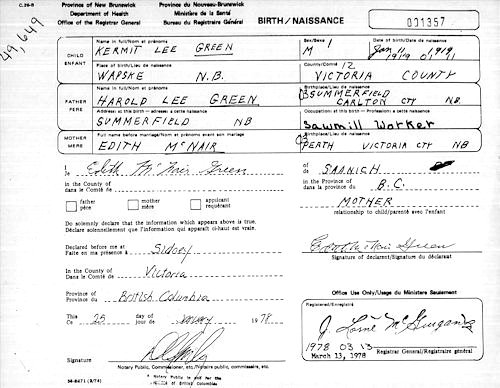 C.26-B
Province of New Brunswick
Department of Health
Office of the Registrar General
Province du Nouveau-Brunswick
Ministère de la Santé
Bureau du Registraire Général
BIRTH / NAISSANCE
001357
49,649
CHILD
ENFANT
Name in full/Nom et prénoms
KERMIT LEE GREEN
Sex/Sexe
M 1
Date
Jan 11 1919
1919 01 11
Place of birth/Lieu de naissance
WAPSKE N.B.
County/Comté 12
VICTORIA COUNTY
FATHER
PÈRE
Name in full/Nom et prénoms
HAROLD LEE GREEN
Birthplace/Lieu de naissance
SUMMERFIELD
CARLTON CTY NB.
Address at this birth — Adresse: à cette naissance
SUMMERFIELD NB
Occupation: at this birth — Profession: à cette naissance
Sawmill Worker
MOTHER
MÈRE
Full name before marriage/Nom et prénoms avant son mariage
EDITH McNAIR
Birthplace/Lieu de naissance
PERTH VICTORIA CTY NB
I
Je
Edith McNair Green
of
de
SAANICH
in the County of
dans le Comté de
in the Province of
dans la province du
B.C.
father
père
mother
mère
applicant
requérant
MOTHER
relationship to child/parenté avec l'enfant
Do solemnly declare that the information which appears above is true.
Déclare solennellement que l'information qui apparaît ci-haut est vraie.
Declared before me at
Faite en ma présence à
Sidney
Edith McNair Green
Signature of declarant/Signature du déclarant
in the County of
Dans le Comté de
Victoria
Province of
Province du
British Columbia
Office Use Only/Usage du Ministère Seulement
This
Ce
25
day of
jour de
January
1978
Registered/Enregistré
1978 03 13
March 13, 1978
Registrar General/Registraire général
Signature
Notary Public, Commissioner, etc./Notaire public, commissaire, etc.
A Notary Public in and for the
Province of British Columbia
36-8471 (3/74)